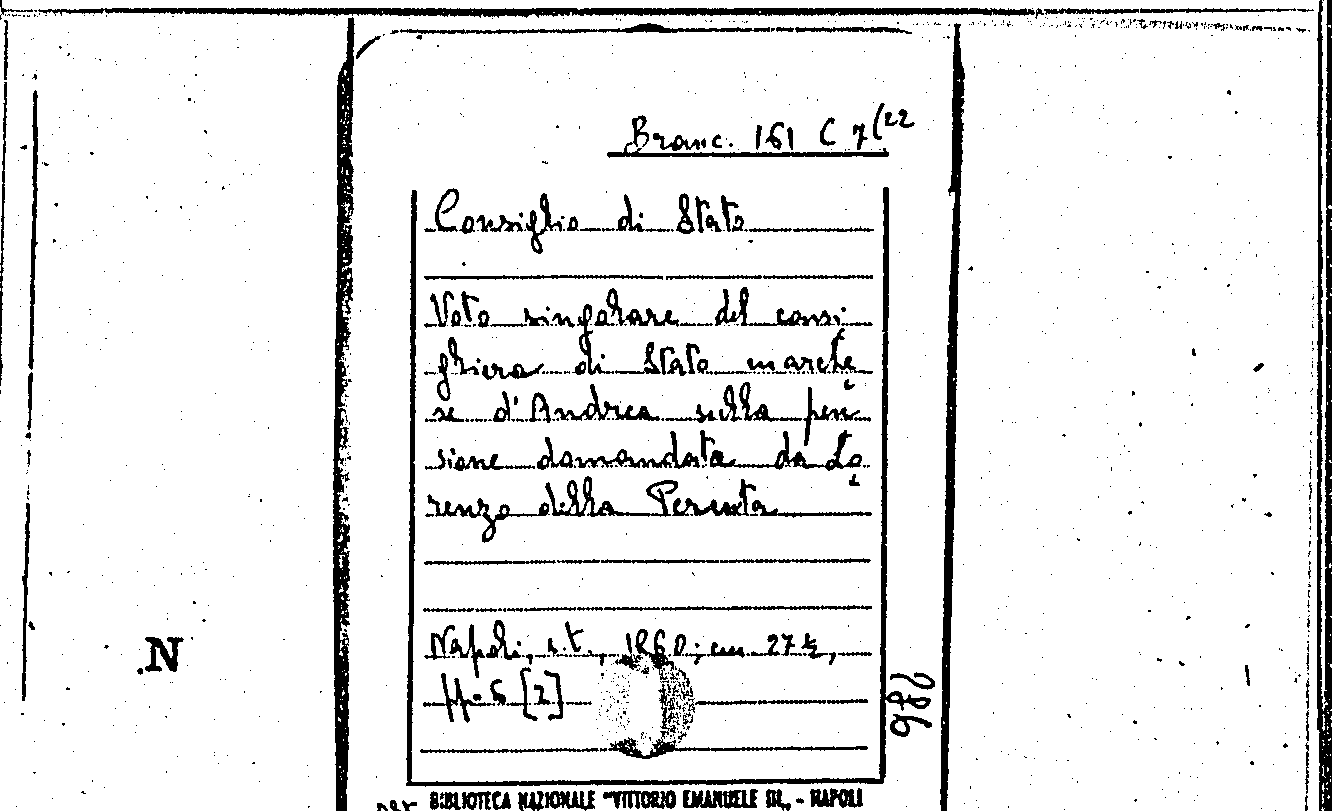 Branc. 161 C 7(22
Consiglio di Stato
Voto singolare del consi
gliera di Stato marche
se d'Andrea sulla pen
sione domandata da Lo
renzo della Perruta
Napoli, s.t., 1860; cm 27½,
pp. 6 [2]
986
N
BIBLIOTECA NAZIONALE "VITTORIO EMANUELE III" - NAPOLI